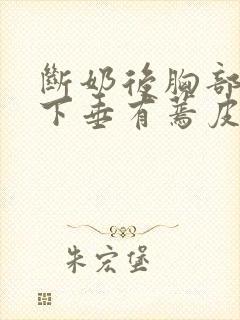 斷奶後胸部
下垂有蔫皮
朱宏堡